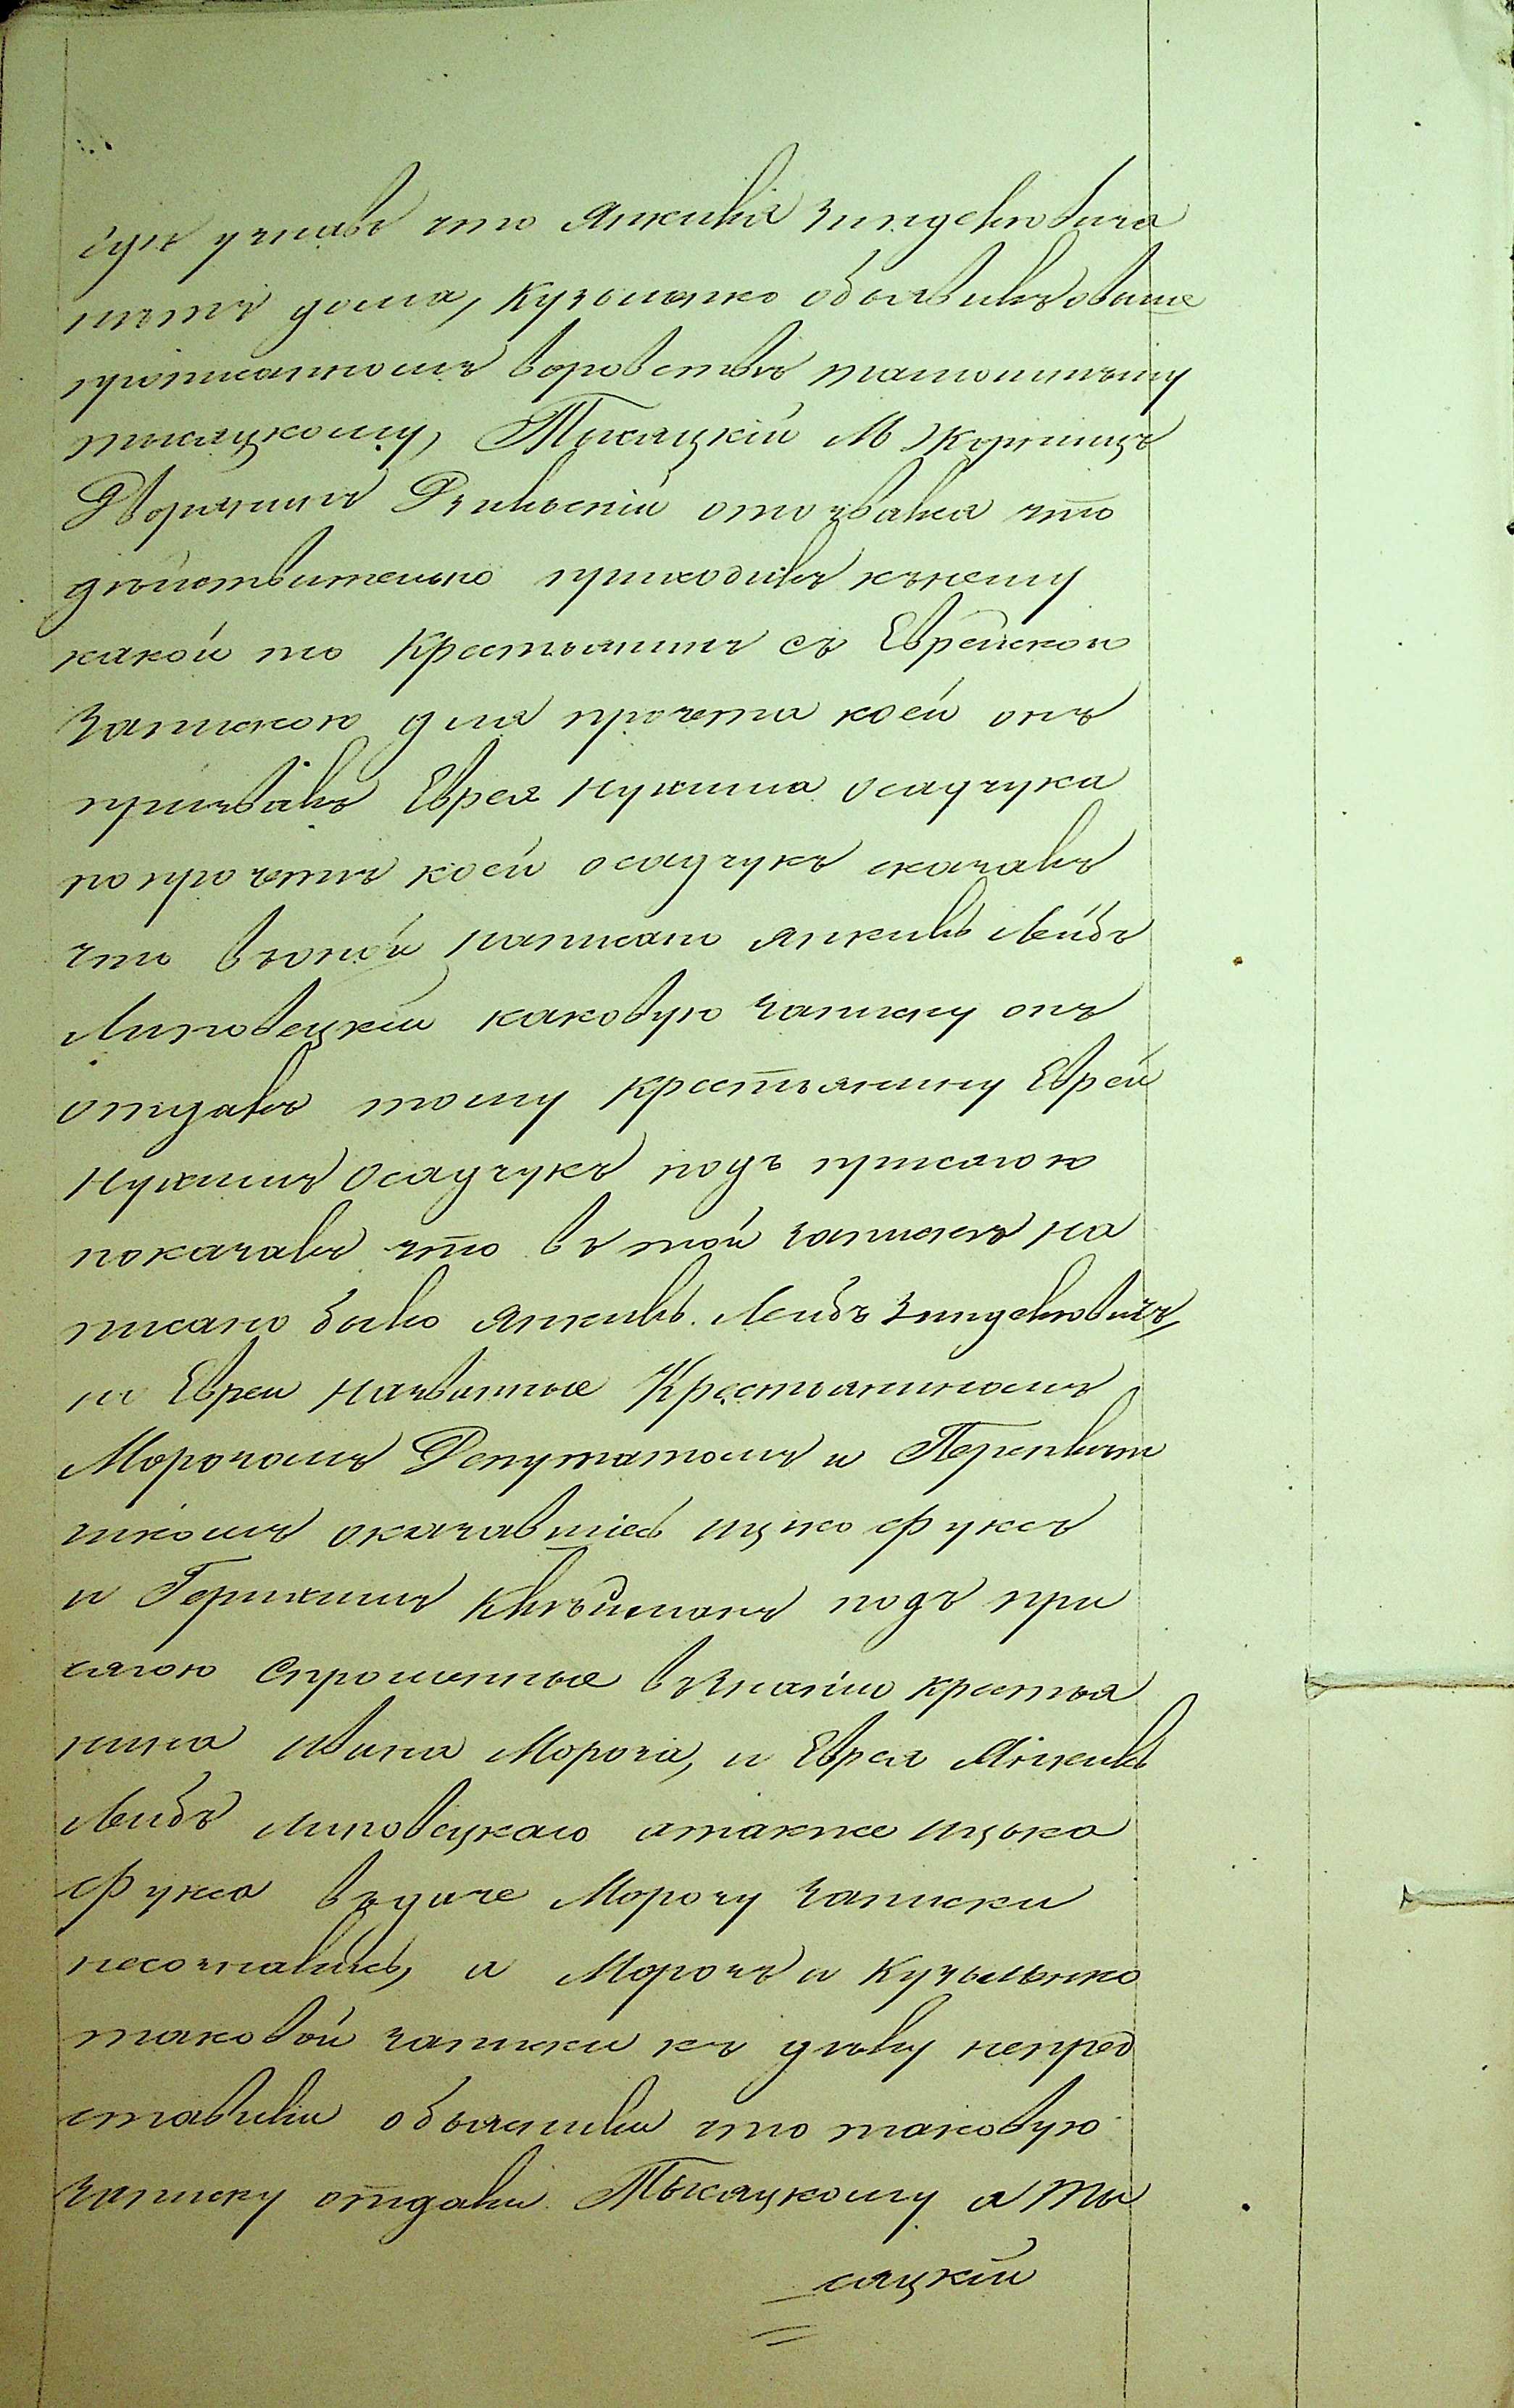 гдѣ узнавъ что Янкиля Зинделювича
нѣтъ дома, Кузьменко объявилъ овыше
прописанномъ воровствѣ тамошнему
тысяцкому, Тысяцкій М Жорнищъ
Дворянинъ Рыльскій отозвался что
дѣйствительно приходилъ кънему
какой то Крестьянинъ съ Еврейскою
запискою для прочета коей онъ
призвалъ Еврея Нухима Осадчука
попрочетѣ коей Осадчукъ сказалъ
что въоной написано Янкиль Лейбъ
Липовецкій каковую записку онъ
отдалъ тому крестьянину Еврей
Нухимъ Осадчукъ подъ присягою
показалъ что въ той запискѣ на
писано было Янкиль Лейбъ Зинделювичъ,
но Евреи названные Крестьяниномъ
Морозомъ Депутатомъ и Переплет
чикомъ оказавшіесь Ицко Фуксъ
и Гершкинъ Клейманъ подъ при
сягою Спрошенные взнаніи крестья
нина Ивана Мороза, и Еврея Янкель
Лейбъ Липовецкаго атакже Ицька
Фукса вздаче Морозу записки
несознались, а Морозъ и Кузьменко
таковой записки къ дѣлу непред
ставили объяснили что таковую
записку отдали Тысяцкому а Ты
сяцкій